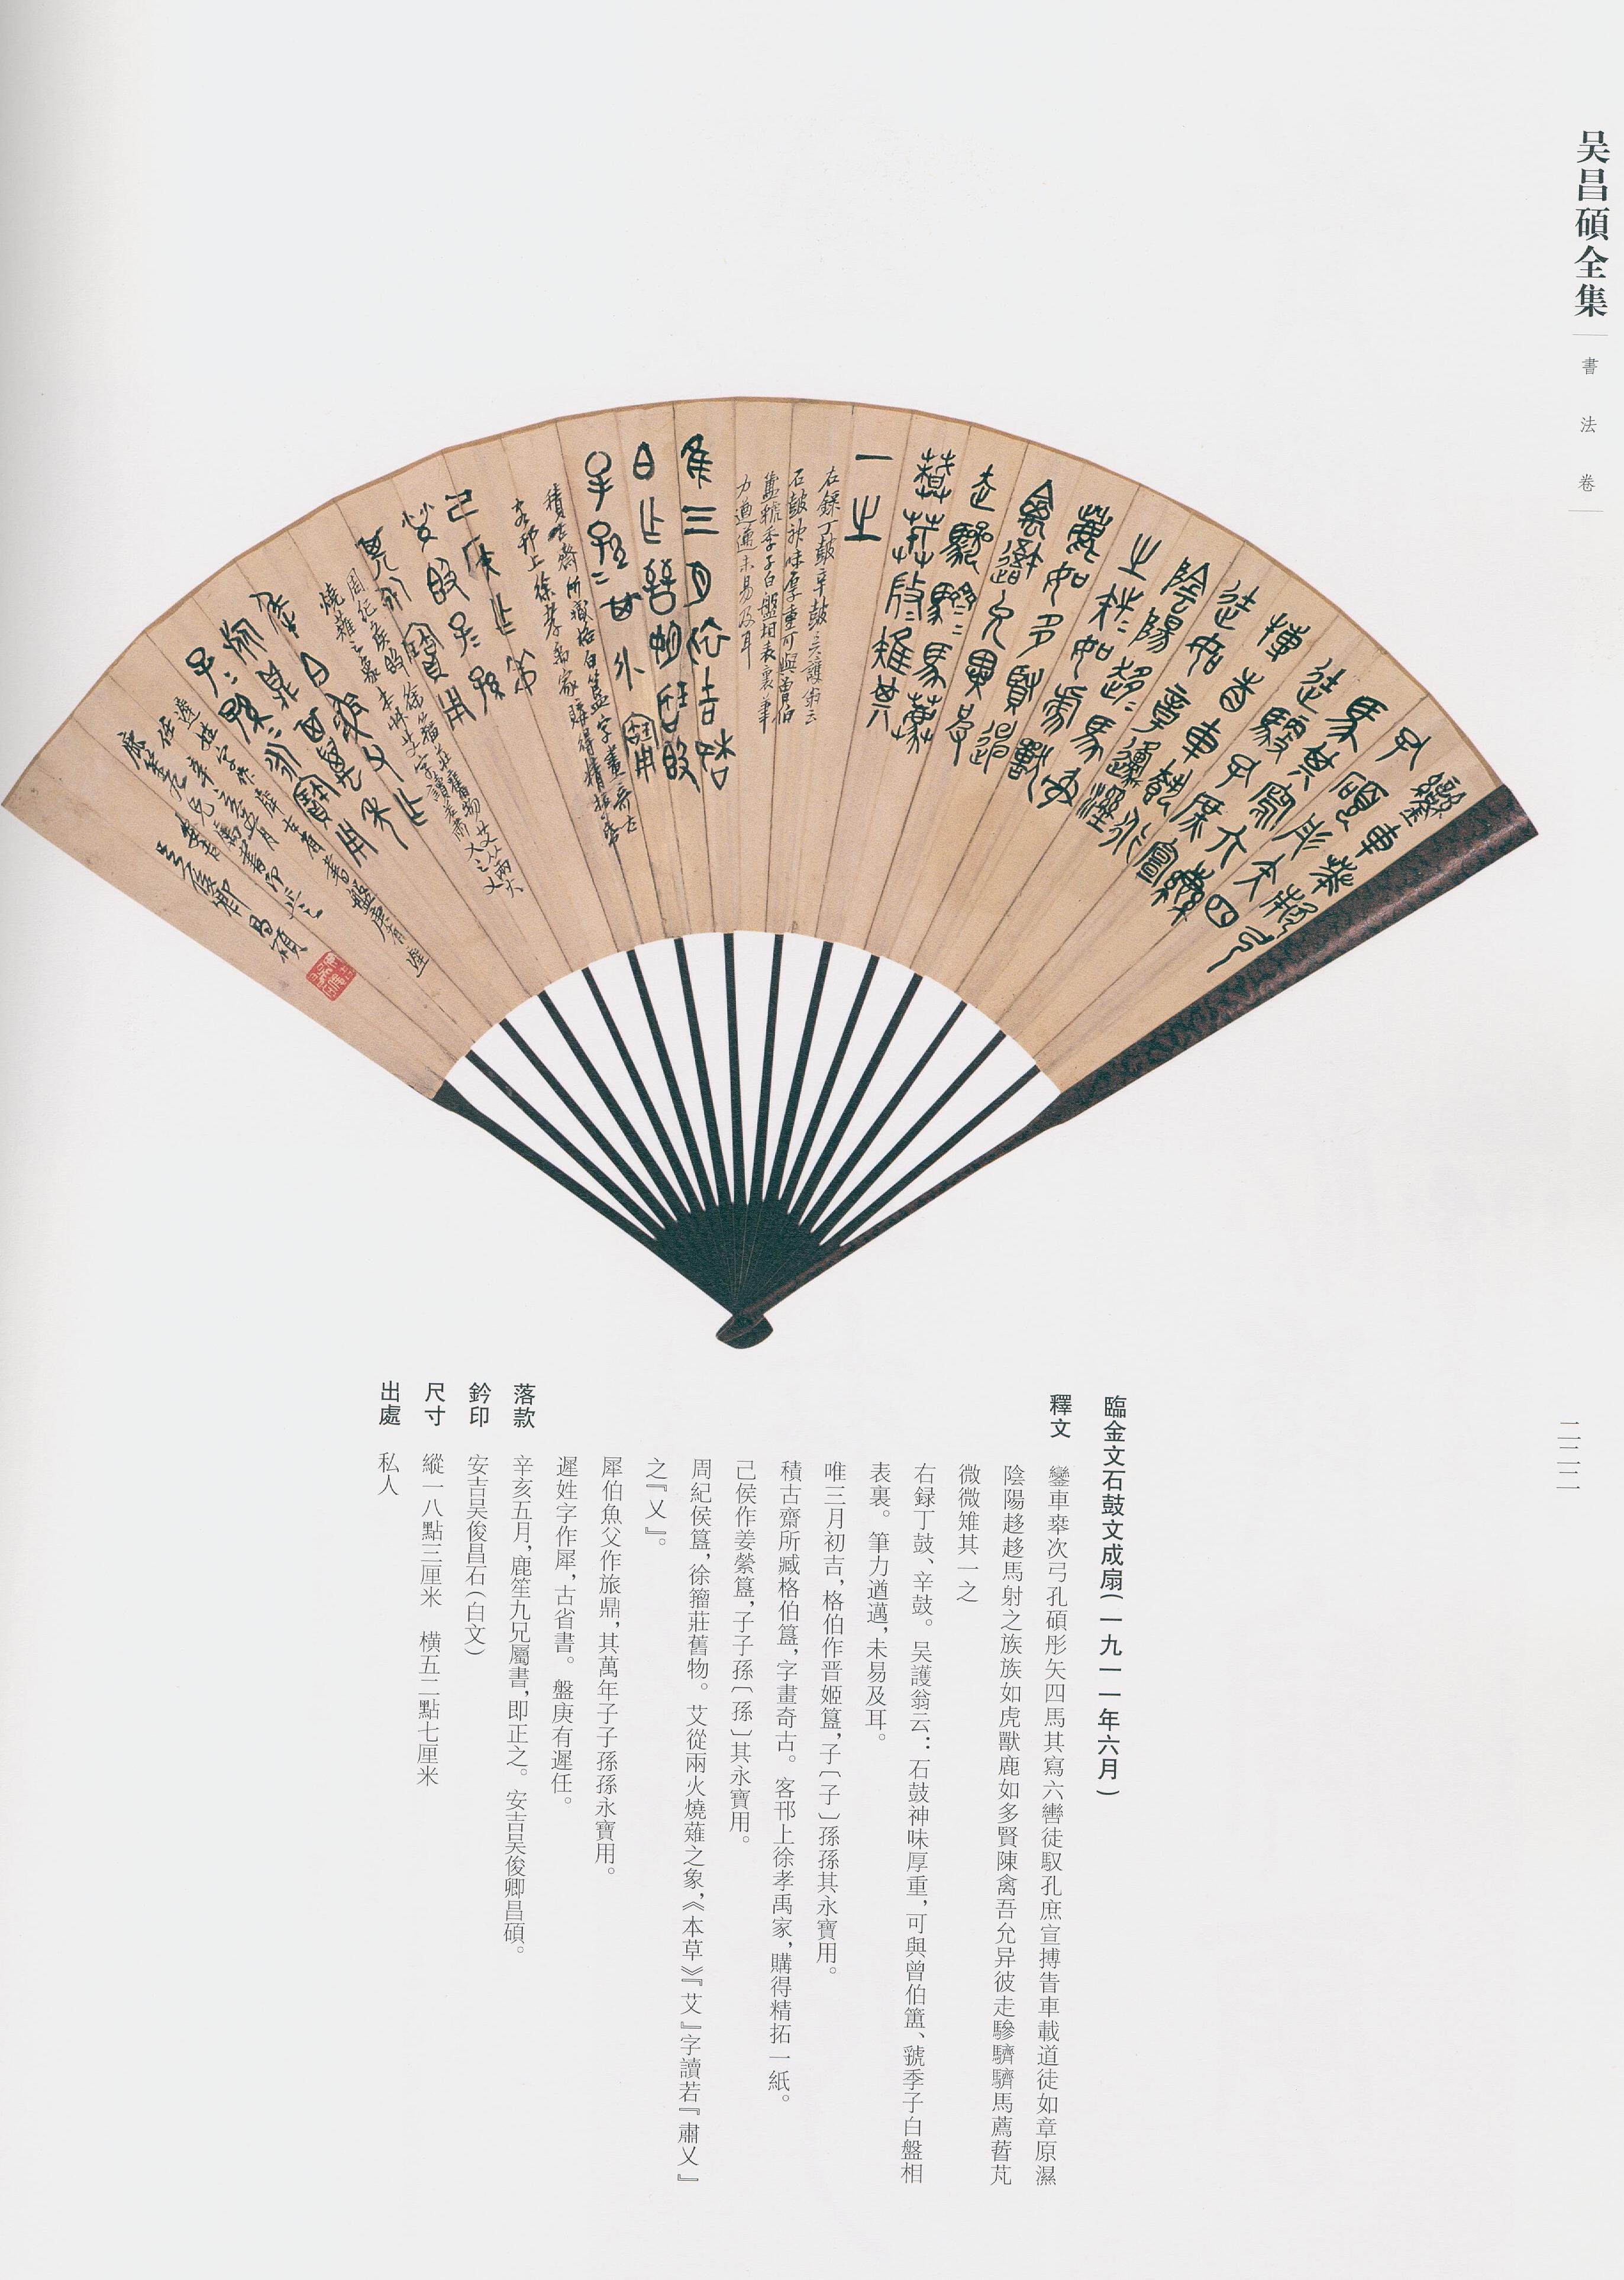 吴昌碩全集
書法卷
二二二
臨金文石鼓文成扇(一九一一年六月)
釋文
鑾車𠦪次弓孔碩彤矢四馬其寫六轡徒馭孔庶宣搏眚車載道徒如章原濕
陰陽趍趍馬射之族族如虎獸鹿如多賢陳禽吾允异彼走驂驕驕馬薦蒈芃
微微雉其一之
右録丁鼓、辛鼓。吴護翁云:石鼓神味厚重,可與曾伯簠、虢季子白盤相
表裏。筆力遒邁,未易及耳。
唯三月初吉,格伯作晋姬簋,子〔子〕孫孫其永寶用。
積古齋所臧格伯簋,字畫奇古。客邗上徐孝禹家,購得精拓一紙。
己侯作姜縈簋,子子孫〔孫〕其永寶用。
周紀侯簋,徐籀莊舊物。艾從兩火燒薙之象,《本草》『艾』字讀若『肅乂』
之『乂』。
犀伯魚父作旅鼎,其萬年子子孫孫永寶用。
遲姓字作犀,古省書。盤庚有遲任。
落款 辛亥五月,鹿笙九兄屬書,即正之。安吉吴俊卿昌碩。
鈐印 安吉吴俊昌石(白文)
尺寸 縱一八點三厘米 横五二點七厘米
出處 私人